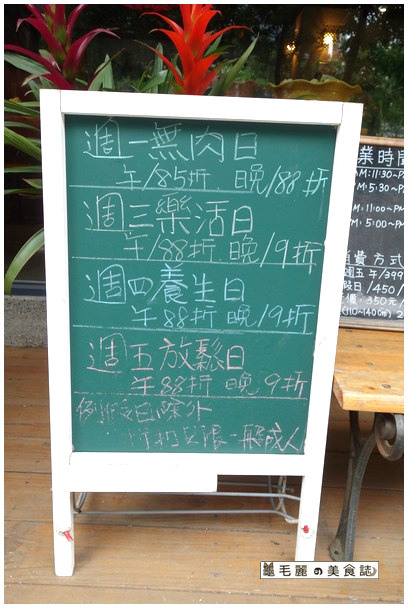 週一無肉日
午/85折 晚/88折
週三樂活日
午/88折 晚/9折
週四養生日
午 88折 晚/9折
週五放鬆日
午 88折 晚 9折
例假日除外
折扣只限一般成人
業時間
M:11:30~P
M:5:30~P
M:11:00~P
M:5:00~P
消費方式
週五 午/399
假日/450/
價/350元/
毛麗の美食誌